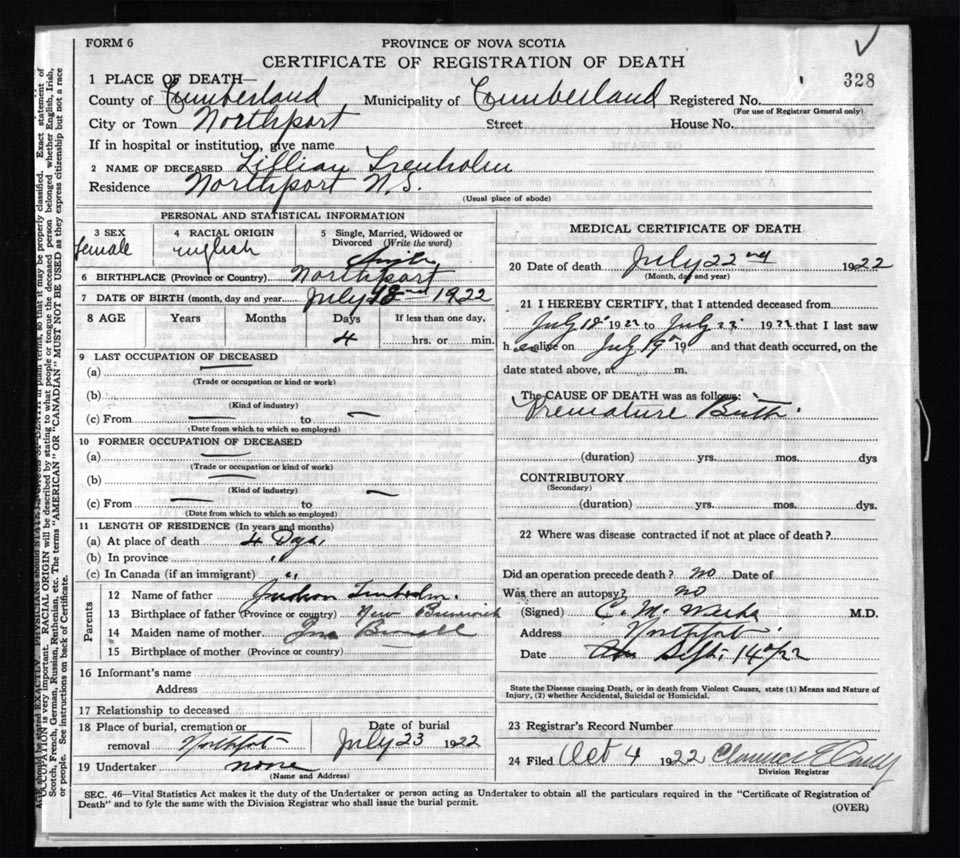 FORM 6
PROVINCE OF NOVA SCOTIA
CERTIFICATE OF REGISTRATION OF DEATH
328
1 PLACE OF DEATH—
County of Cumberland Municipality of Cumberland Registered No.
(For use of Registrar General only)
City or Town Northport Street House No.
If in hospital or institution, give name
2 NAME OF DECEASED Lillian Trenholm
Residence Northport N.S.
(Usual place of abode)
PERSONAL AND STATISTICAL INFORMATION
3 SEX female
4 RACIAL ORIGIN english
5 Single, Married, Widowed or Divorced (Write the word) Single
6 BIRTHPLACE (Province or Country) Northport
7 DATE OF BIRTH (month, day and year) July 18 1922
8 AGE Years Months Days 4 If less than one day, hrs. or min.
9 LAST OCCUPATION OF DECEASED
(a) —
(Trade or occupation or kind or work)
(b) —
(Kind of industry)
(c) From — to —
(Date from which to which so employed)
10 FORMER OCCUPATION OF DECEASED
(a) —
(Trade or occupation or kind of work)
(b) —
(Kind of industry)
(c) From — to —
(Date from which to which so employed)
11 LENGTH OF RESIDENCE (In years and months)
(a) At place of death 4 Dys.
(b) In province "
(c) In Canada (if an immigrant) "
Parents
12 Name of father Judson Trenholm.
13 Birthplace of father (Province or country) New Brunswick
14 Maiden name of mother
15 Birthplace of mother (Province or country)
16 Informant's name
Address
17 Relationship to deceased
18 Place of burial, cremation or removal Northport Date of burial July 23 1922
19 Undertaker none
(Name and Address)
MEDICAL CERTIFICATE OF DEATH
20 Date of death July 22nd 1922
(Month, day and year)
21 I HEREBY CERTIFY, that I attended deceased from
July 18 1922 to July 22 1922 that I last saw
her alive on July 19 19 and that death occurred, on the
date stated above, at m.
The CAUSE OF DEATH was as follows:
Premature Birth.
(duration) yrs. mos. dys
CONTRIBUTORY
(Secondary)
(duration) yrs. mos. dys.
22 Where was disease contracted if not at place of death?
Did an operation precede death? no Date of
Was there an autopsy? no
(Signed) C. M. M.D.
Address Northport
Date Sept. 14/22
State the Disease causing Death, or in death from Violent Causes, state (1) Means and Nature of
Injury, (2) whether Accidental, Suicidal or Homicidal.
23 Registrar's Record Number
24 Filed Oct 4 1922 Clarence E
Division Registrar
SEC. 46—Vital Statistics Act makes it the duty of the Undertaker or person acting as Undertaker to obtain all the particulars required in the "Certificate of Registration of
Death" and to fyle the same with the Division Registrar who shall issue the burial permit.
(OVER)
OCCUPATION is very important. RACIAL ORIGIN will be described by stating to what people or tongue the deceased person belonged whether English, Irish,
Scotch, French, German, Russian, Ruthenian, etc. The terms "AMERICAN" OR "CANADIAN" MUST NOT BE USED as they express citizenship but not a race
or people. See instructions on back of Certificate.